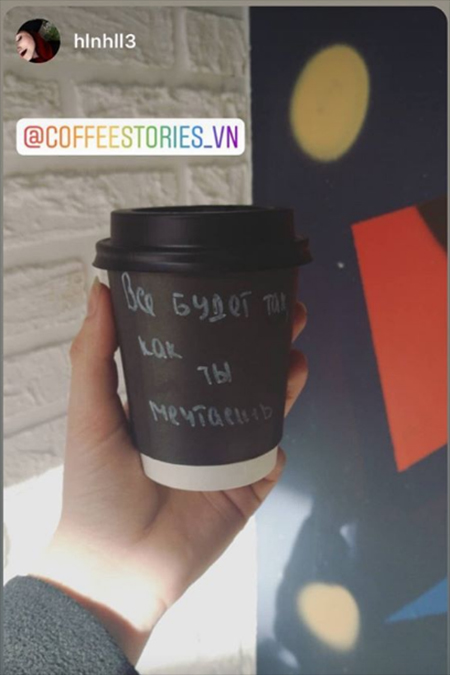 hlnhll3
@COFFEESTORIES_VN
Все будет так
как
ты
мечтаешь